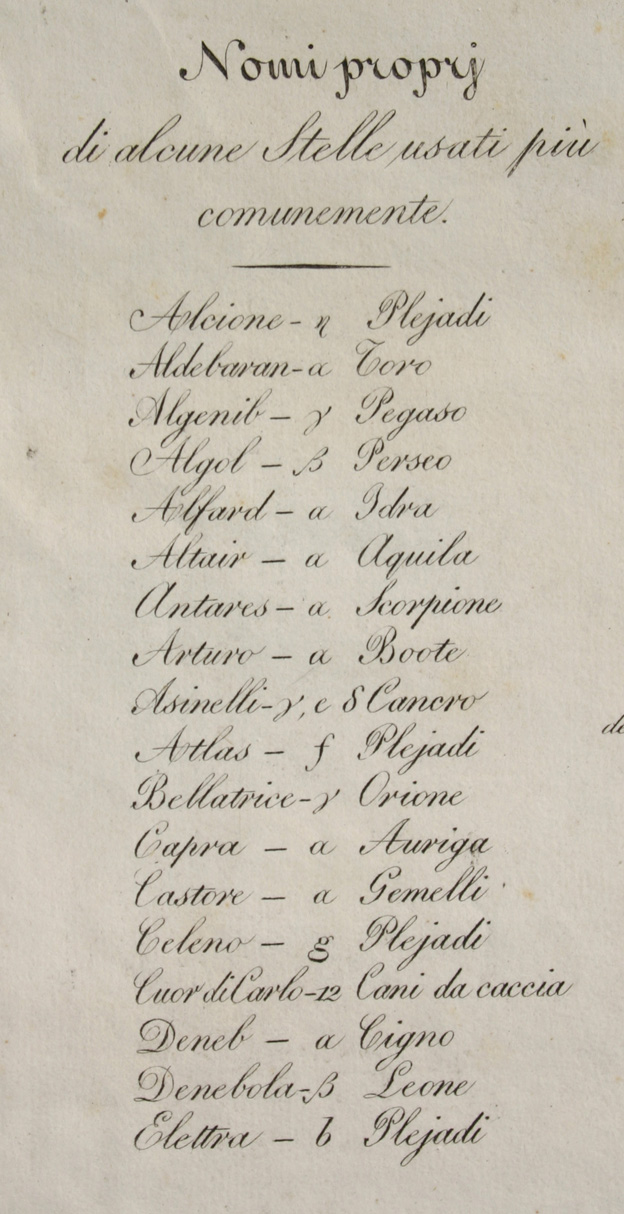 Nomi proprj
di alcune Stelle usati più
comunemente.
Alcione - η Plejadi
Aldebaran - α Toro
Algenib - γ Pegaso
Algol - β Perseo
Alfard - α Idra
Altair - α Aquila
Antares - α Scorpione
Arturo - α Boote
Asinelli - γ, e δ Cancro
Atlas - f Plejadi
Bellatrice - γ Orione
Capra - α Auriga
Castore - α Gemelli
Celeno - g Plejadi
Cuor di Carlo - 12 Cani da caccia
Deneb - α Cigno
Denebola - β Leone
Elettra - b Plejadi